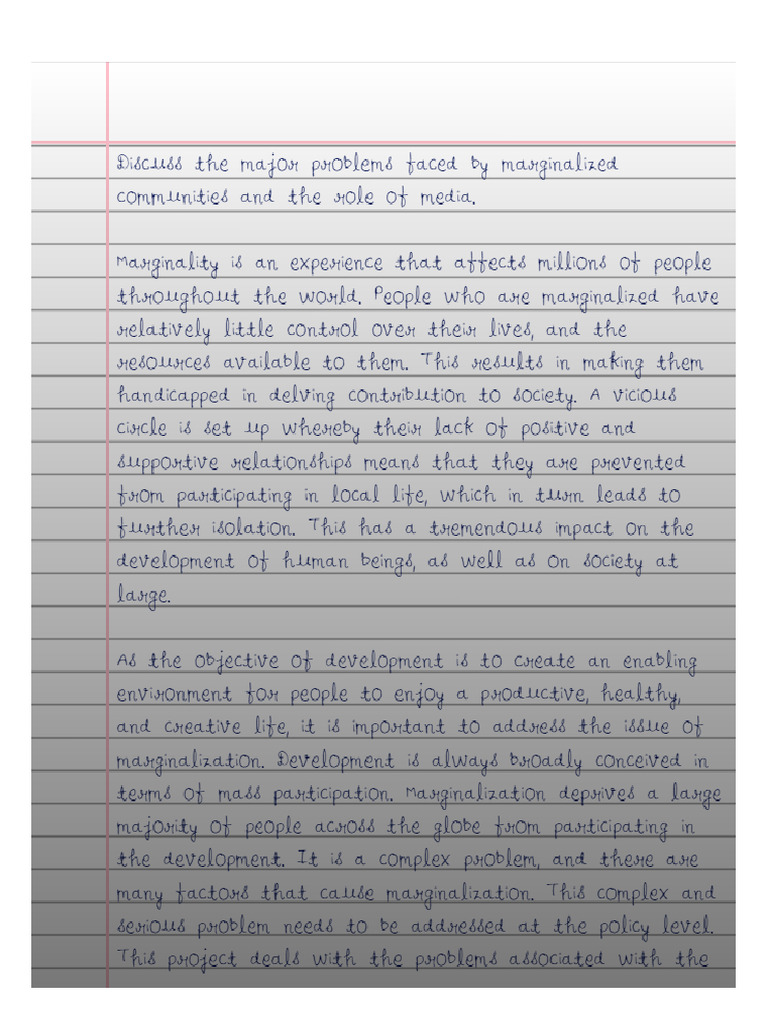 Discuss the major problems faced by marginalized
communities and the role of media.
Marginality is an experience that affects millions of people
throughout the world. People who are marginalized have
relatively little control over their lives, and the
resources available to them. This results in making them
handicapped in delving contribution to society. A vicious
circle is set up whereby their lack of positive and
supportive relationships means that they are prevented
from participating in local life, which in turn leads to
further isolation. This has a tremendous impact on the
development of human beings, as well as on society at
large.
As the objective of development is to create an enabling
environment for people to enjoy a productive, healthy,
and creative life, it is important to address the issue of
marginalization. Development is always broadly conceived in
terms of mass participation. Marginalization deprives a large
majority of people across the globe from participating in
the development. It is a complex problem, and there are
many factors that cause marginalization. This complex and
serious problem needs to be addressed at the policy level.
This project deals with the problems associated with the